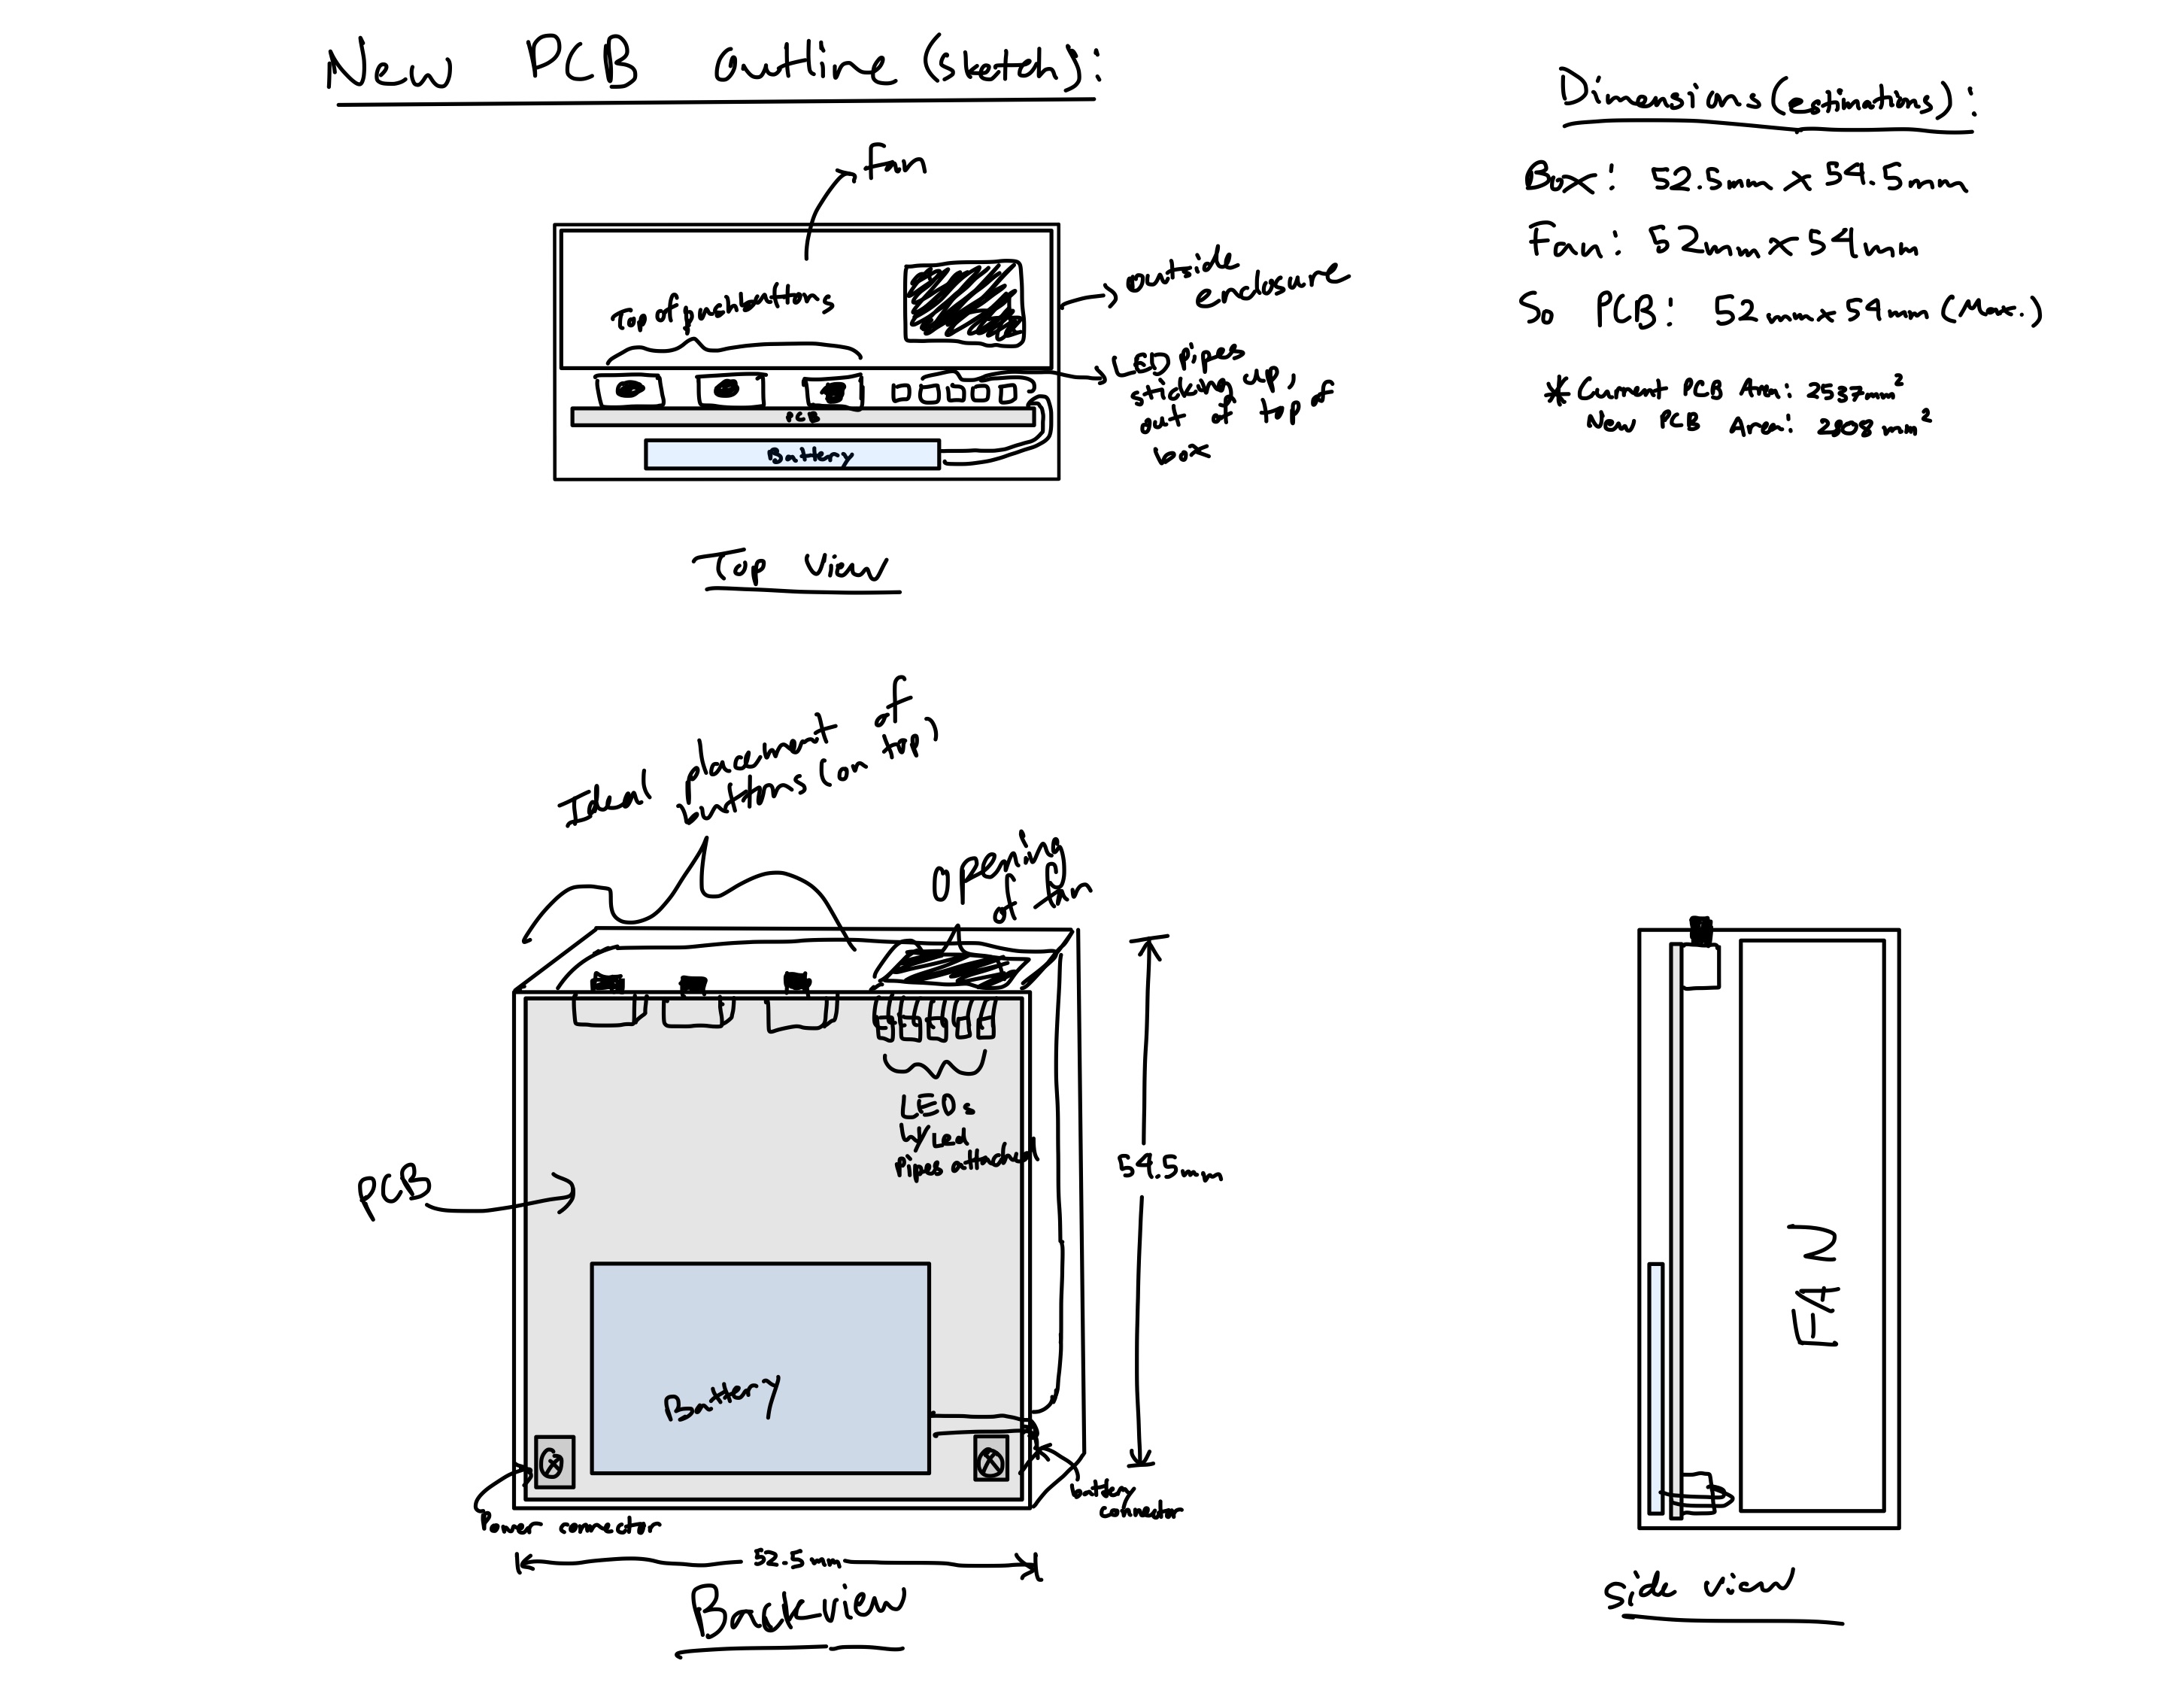 New PCB outline (sketch):
Fan
Top of pushbuttons
outside
enclosure
LED pipes
sticking up,
out of top of
box
PCB
Battery
Top view
Dimensions (estimations):
Box: 52.5mm x 54.5mm
Fan: 52mm x 54mm
So PCB: 52mm x 54mm (Max.)
* Current PCB Area: 2537mm²
New PCB Area: 2808 mm²
Ideal placement of
buttons (on top)
opening
of fan
LEDs
w/ Led
pipes attached
PCB
54.5mm
Battery
Power connector
battery
connector
52.5mm
Backview
FAN
side view